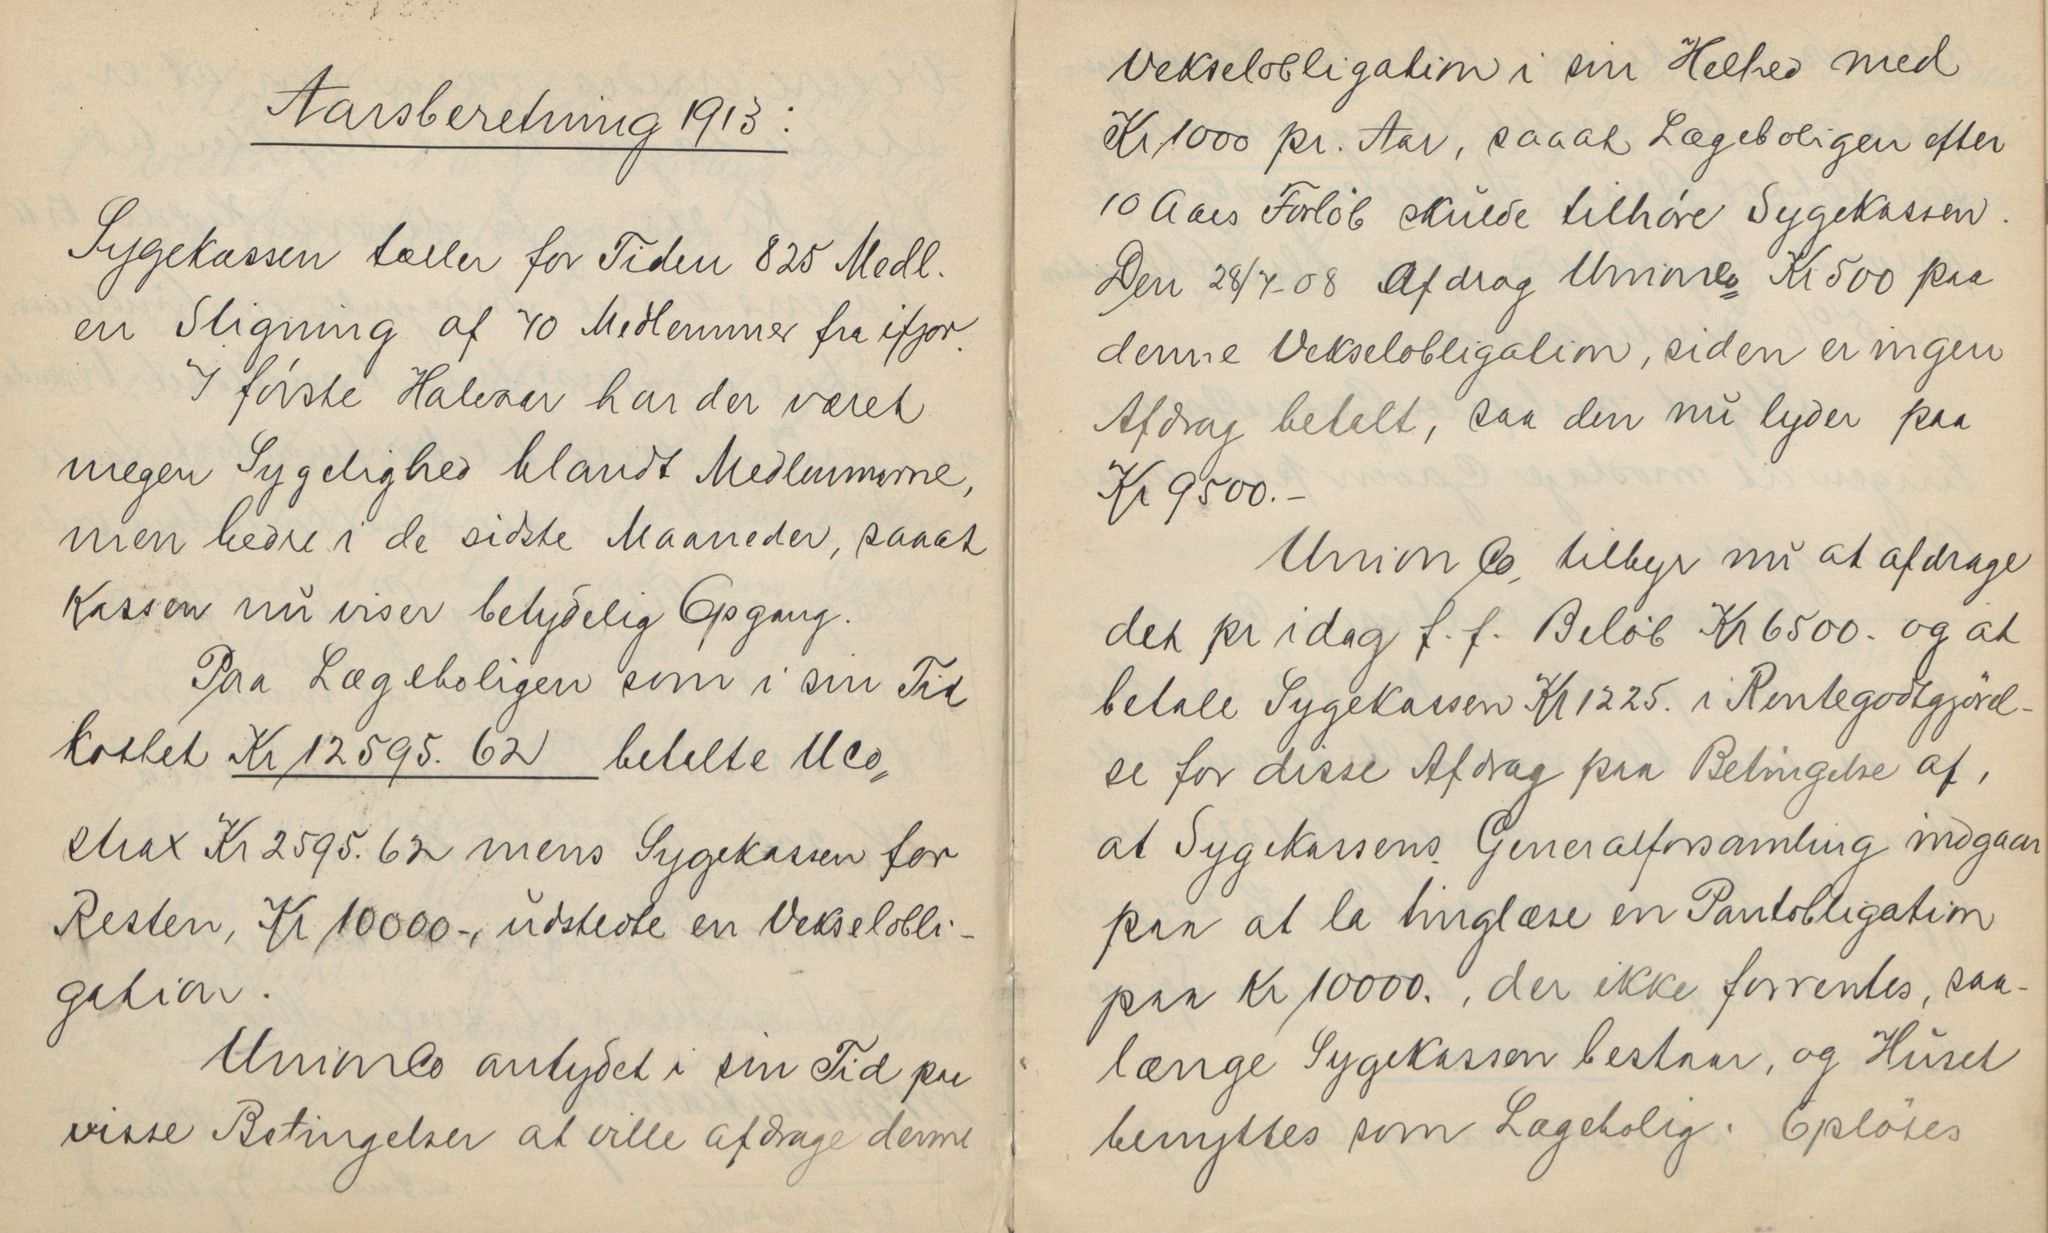 Aarsberetning 1913:
Sygekassen tæller for Tiden 825 Medl.
en Stigning af 70 Medlemmer fra ifjor.
I første Halvaar har der været
megen Sygelighed blandt Medlemmerne,
men bedre i de sidste Maaneder, saaat
Kassen nu viser betydelig Opgang.
Paa Lægeboligen som i sin Tid
kostet Kr 12595.62 betalte UCo,
strax Kr 2595.62 mens Sygekassen for
Resten, Kr 10000-, udstedte en Vekselobli-
gation.
Union Co antydet i sin Tid paa
visse Betingelser at ville afdrage denne
Vekselobligation i sin Helhed med
Kr 1000 pr. Aar, saaat Lægeboligen efter
10 Aars Forløb skulde tilhøre Sygekassen.
Den 28/7-08 Afdrog Union Co Kr 500 paa
denne Vekselobligation, siden er ingen
Afdrag betalt, saa den nu lyder paa
Kr 9500.-
Union Co, tilbyr nu at afdrage
det pr idag f. f. Beløb Kr 6500.- og at
betale Sygekassen Kr 1225. i Rentegodtgjørel-
se for disse Afdrag paa Betingelse af,
at Sygekassens Generalforsamling indgaar
paa at la tinglæse en Pantobligation
paa Kr 10000., der ikke forrentes, saa-
længe Sygekassen bestaar, og Huset
benyttes som Lægebolig. Opløses